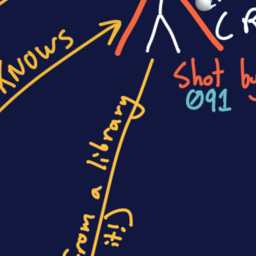 CR
KNOWS
Shot by
091
from a library
Citi